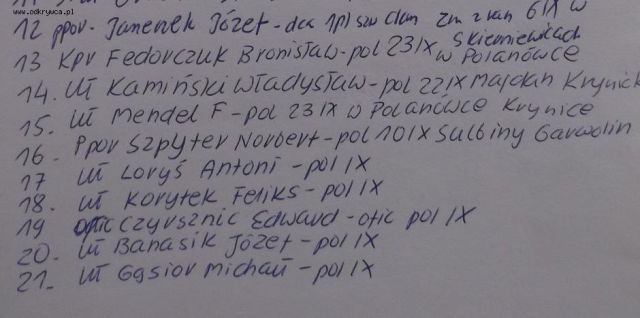 www.odkrywca.pl
12 ppor. Janenek Józef - dca 1pl szw Clam zm z ran 6 IX w
Skierniewicach
13 Kpr Fedorczuk Bronisław - pol 23 IX w Polanówce
14. Uł Kamiński Władysław - pol 22 IX Majdan Krynick
15. Uł Mendel F - pol 23 IX w Polanówce Krynice
16. Ppor Szpyter Norbert - pol 10 IX Sulbiny Garwolin
17 Uł Loryś Antoni - pol IX
18. Uł Korytek Feliks - pol IX
19 Czyrsznic Edward - ofic pol IX
20. Uł Banasik Józef - pol IX
21. Uł Gąsior Michał - pol IX